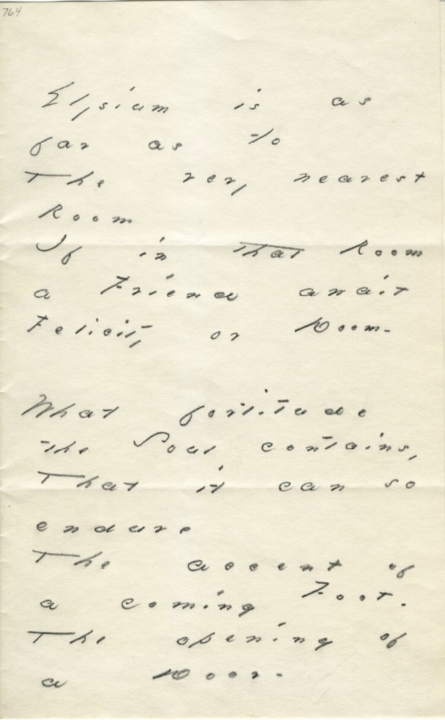 764
Elysium is as
far as to
The very nearest
Room
If in that Room
a Friend await
Felicity or Doom-
What fortitude
the Soul contains,
That it can so
endure
The accent of
a coming Foot.
The opening of
a Door-